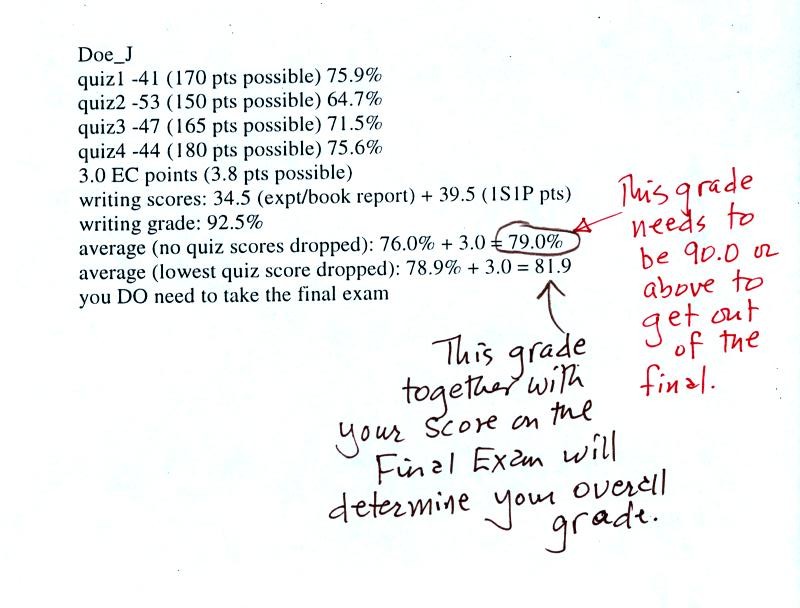 Doe_J
quiz1 -41 (170 pts possible) 75.9%
quiz2 -53 (150 pts possible) 64.7%
quiz3 -47 (165 pts possible) 71.5%
quiz4 -44 (180 pts possible) 75.6%
3.0 EC points (3.8 pts possible)
writing scores: 34.5 (expt/book report) + 39.5 (1S1P pts)
writing grade: 92.5%
average (no quiz scores dropped): 76.0% + 3.0 = 79.0%
average (lowest quiz score dropped): 78.9% + 3.0 = 81.9
you DO need to take the final exam
This grade
needs to
be 90.0 or
above to
get out
of the
final.
This grade
together with
your score on the
Final Exam will
determine your overall
grade.